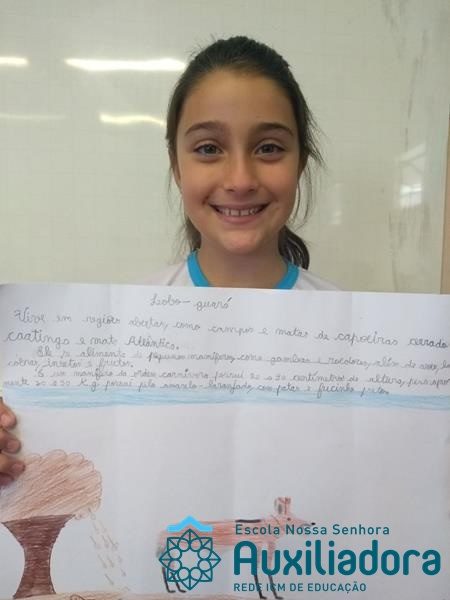 Lobo-guará
Vive em regiões abertas, como campos e matas de capoeiras, cerrado
caatinga e mata Atlântica.
Ele se alimenta de pequenos mamíferos, como gambás e roedores, além de aves,
cobras, insetos e frutos.
É um mamífero da ordem carnívora possui 20 a 90 centímetros de altura, pesa apro
mente 20 a 30 Kg possui pelo amarelo-laranjado, com patas e fucinho pretos.
Escola Nossa Senhora
Auxiliadora
REDE ICM DE EDUCAÇÃO